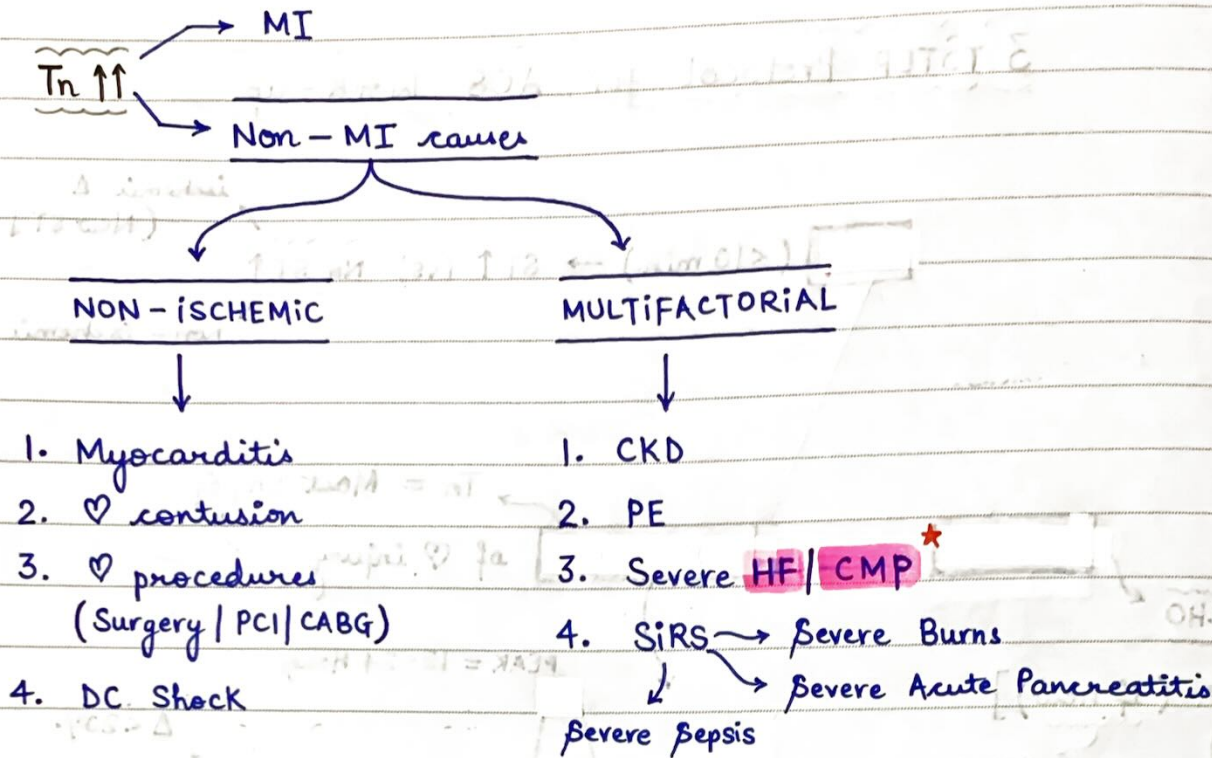 MI
Tn ↑↑
Non-MI causes
NON-iSCHEMiC
MULTiFACTORiAL
1. Myocarditis
2. ♡ contusion
3. ♡ procedures
(Surgery | PCI | CABG)
4. DC Shock
1. CKD
2. PE
3. Severe HF | CMP
4. SiRS → Severe Burns
Severe Acute Pancreatitis
Severe Sepsis